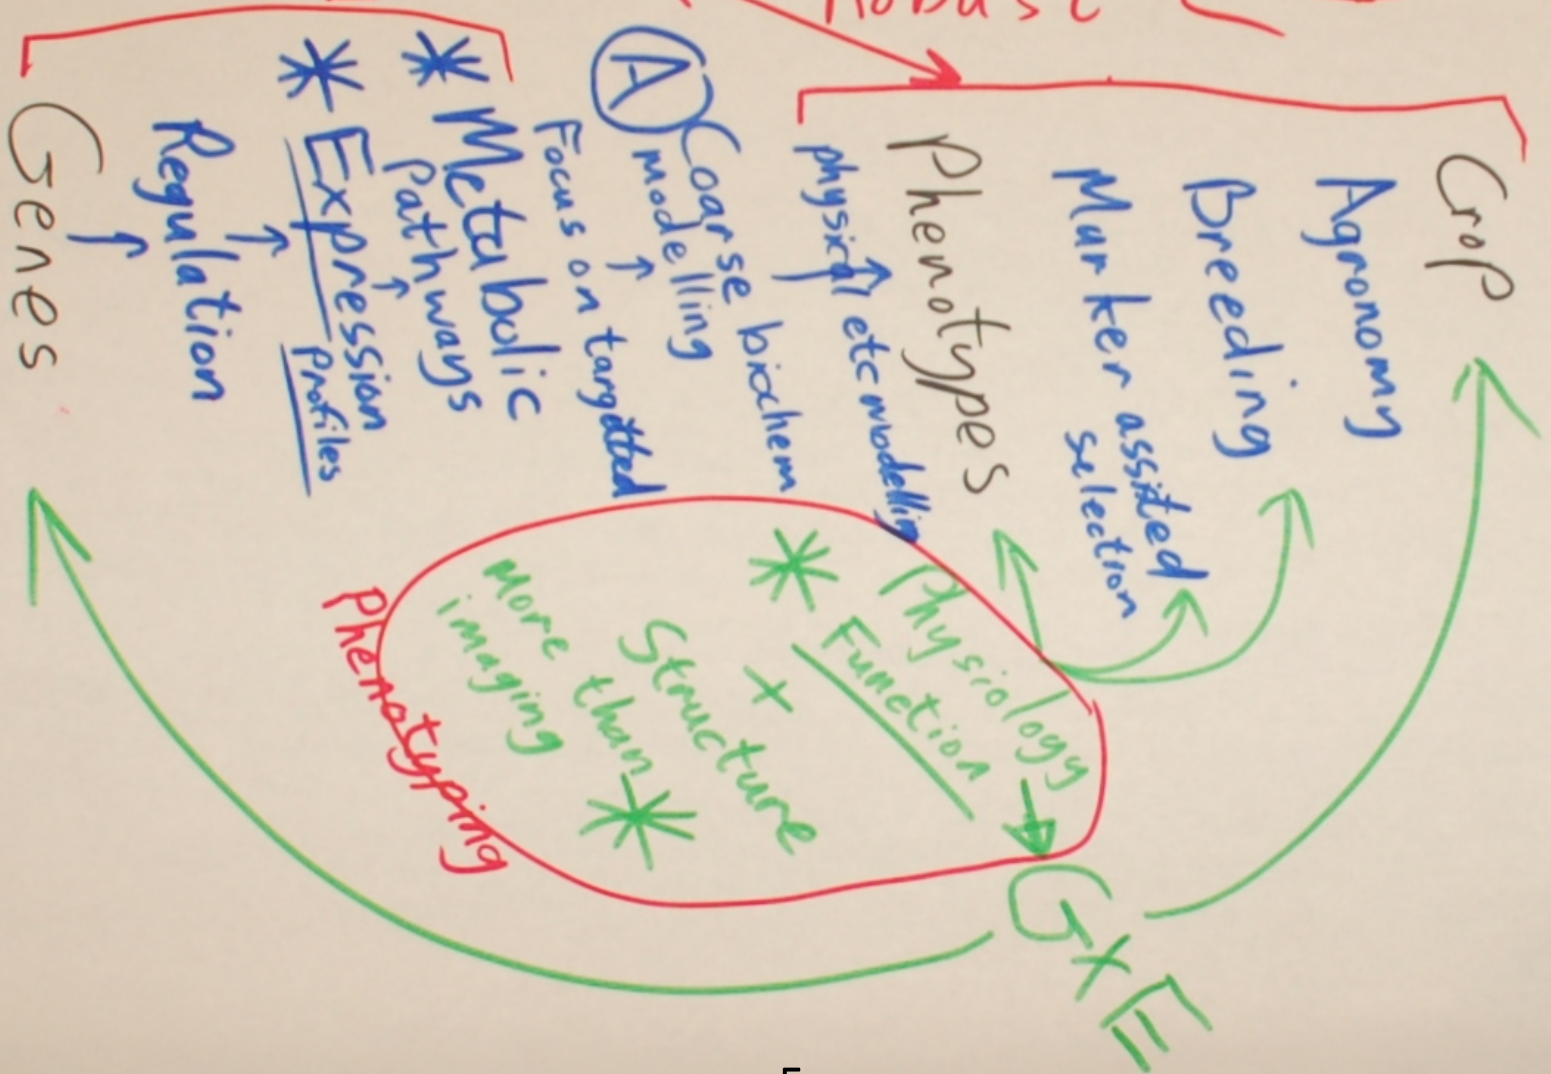 Robust
Crop
Agronomy
Breeding
Marker assisted
selection
Phenotypes
physical etc modelling
A Coarse biochem
modelling
Focus on targetted
* Metabolic
Pathways
* Expression
Profiles
Regulation
Genes
Physiology
* Function
+
Structure
More than *
imaging
Phenotyping
GxE